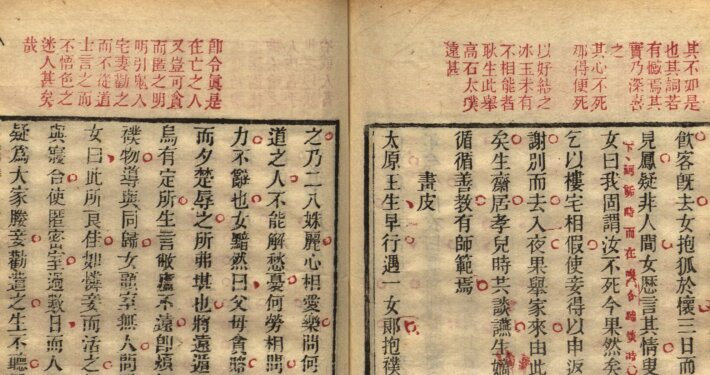 其不如是
也其詞若
有憾焉其
實乃深喜
之
其心不死
那得便死
以好結之
冰玉未有
不相能者
耿生此舉
高石太璞
遠甚
飲客既去女抱狐於懷三日而
見鳳疑非人間女歷言其情叟
女曰我固謂汝不死今果然矣
乞以樓宅相假使妾得以申返
謝別而去入夜果舉家來由此
矣生齋居孝兒時共談讌生嫡
循循善教有師範焉
畫皮
太原王生早行遇一女郎抱襆
卽令眞是
在亡之人
又豈可貪
而匿之明
明引鬼入
宅妻勸之
而不從道
士言之而
不悟色之
迷人甚矣
哉
之乃二八姝麗心相愛樂問何
道之人不能解愁憂何勞相問
力不辭也女黯然曰父母貪賂
而夕楚辱之所弗堪也將遠遁
烏有定所生言敝廬不遠卽煩
襆物導與同歸女顧室無人問
女曰此所良佳如憐妾而活之
與寢合使匿密室過數日而人
疑爲大家媵妾勸遣之生不聽